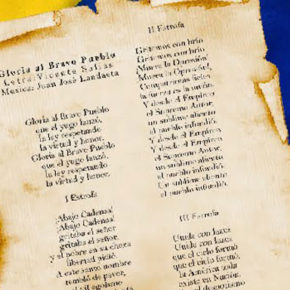 Gloria al Bravo Pueblo
Letra: Vicente Salias
Música: Juan José Landaeta
Gloria al Bravo Pueblo
que el yugo lanzó,
la ley respetando
la virtud y honor.
Gloria al Bravo Pueblo
que el yugo lanzó,
la ley respetando
la virtud y honor.
I Estrofa
¡Abajo Cadenas!
¡Abajo Cadenas!
gritaba el señor
gritaba el señor,
y el pobre en su choza
libertad pidió.
A este santo nombre
tembló de pavor,
el vil egoísmo
II Estrofa
Gritemos con brío
Gritemos con brío,
¡Muera la Opresión!
¡Muera la Opresión!,
Compatriotas fieles
la fuerza es la unión;
Y desde el Empíreo
el Supremo Autor,
un sublime aliento
al pueblo infundió.
Y desde el Empíreo
Y desde el Empíreo
el Supremo Autor,
un sublime aliento
al pueblo infundió.
Un sublime aliento
al pueblo infundió.
III Estrofa
Unida con lazos
Unida con lazos
que el cielo formó
que el cielo formó
la América toda
existe en Nación,